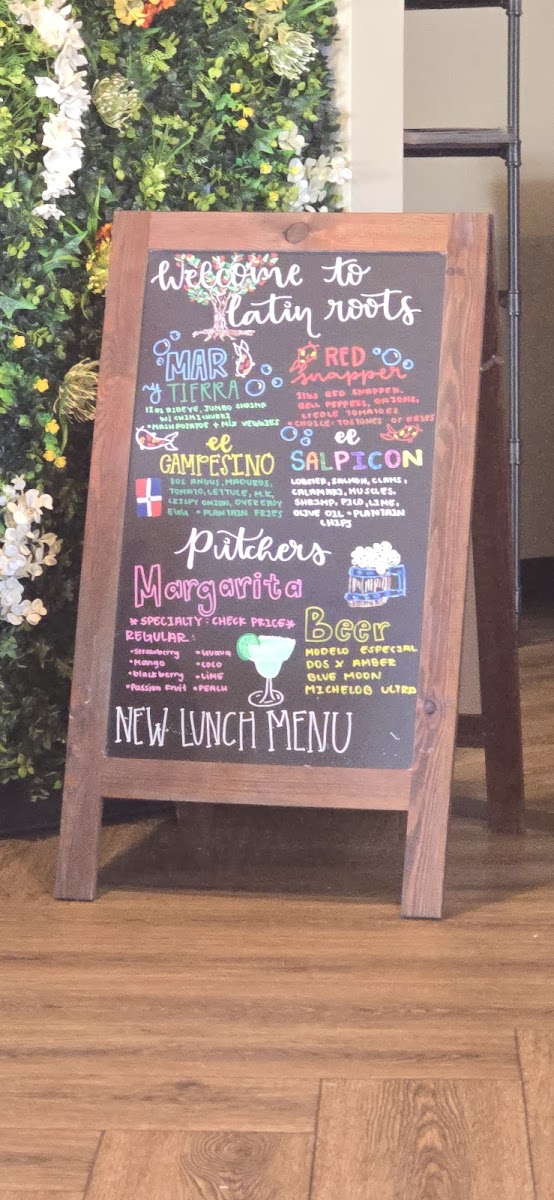 Welcome to
latin roots
MAR
y TIERRA
12oz RIBEYE, JUMBO SHRIMP
w/ CHIMICHURRI
• MASH POTATOS + MIX VEGGIES
RED
Snapper
RED SNAPPER,
BELL PEPPERS, ONIONS,
CREOLE TOMATOES
• CHOICE: TOSTONES or FRIES
el
CAMPESINO
8oz ANGUS, MADUROS,
TOMATO, LETTUCE, M.K,
CRISPY ONION, OVER EASY
• PLANTAIN FRIES
el
SALPICON
LOBSTER, SALMON, CLAMS,
CALAMARI, MUSCLES,
SHRIMP, PICO, LIME,
OLIVE OIL • PLANTAIN
CHIPS
Pitchers
Margarita
* SPECIALTY: CHECK PRICE *
REGULAR:
• Strawberry • Guava
• Mango • COCO
• blackberry • LIME
• Passion Fruit • PEACH
Beer
MODELO ESPECIAL
DOS X AMBER
BLUE MOON
MICHELOB ULTRA
NEW LUNCH MENU